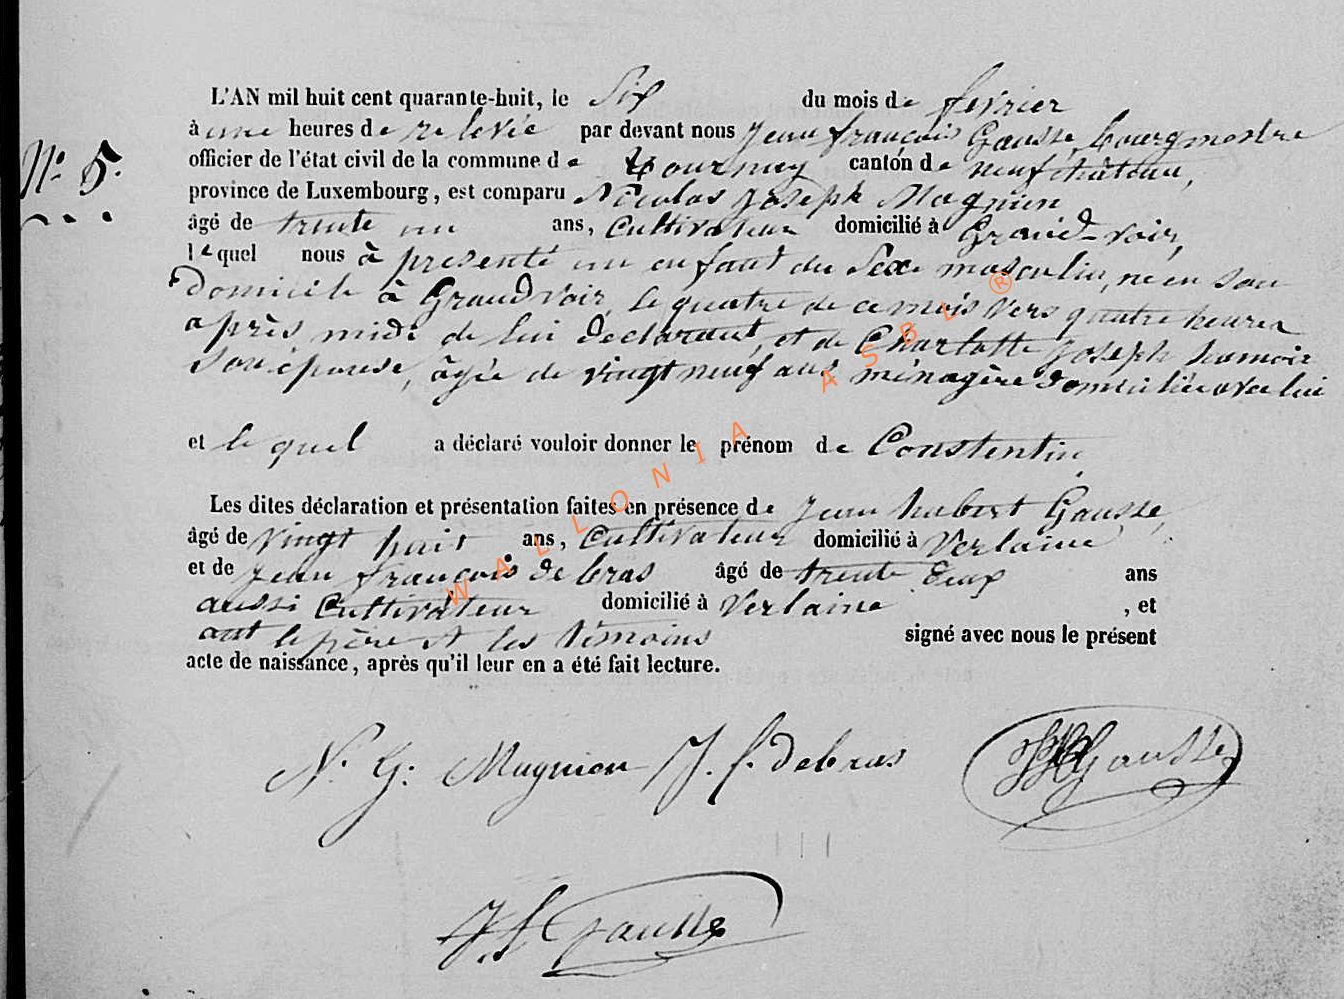 L'AN mil huit cent quarante-huit, le Six du mois de fevrier
à une heures de relevée par devant nous Jean françois Gausse, bourgmestre
N°. 5.
officier de l'état civil de la commune de tournay canton de neufchâteau,
province de Luxembourg, est comparu Nicolas Joseph Magnien
âgé de trente un ans, Cultivateur domicilié à Grand-voir,
lequel nous à présenté un enfant du Sexe masculin, né en son
Domicile à Grandvoir, le quatre de ce mois vers quatre heures
après midi de lui déclarant, et de Charlotte Joseph hamoir
Son épouse, âgée de vingt neuf ans ménagère domiciliée avec lui
et le quel a déclaré vouloir donner le prénom de Constentin
Les dites déclaration et présentation faites en présence de Jean hubert Gausse,
âgé de vingt huit ans, Cultivateur domicilié à Verlaine
et de Jean françois de bras âgé de trente Deux ans
aussi Cultivateur domicilié à Verlaine , et
ont le père et les témoins signé avec nous le présent
acte de naissance, après qu'il leur en a été fait lecture.
N. J. Magnien J. f. debras JH Gausse
J f Gausse
WALLONIA ASBL ®